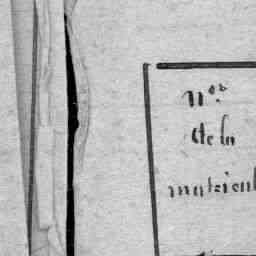 nos
de la
matricul